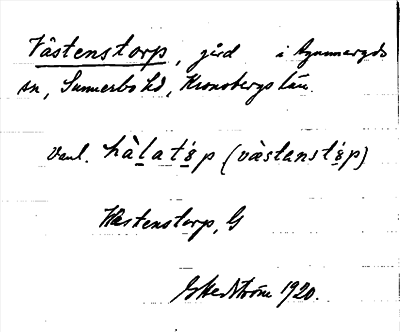 Västenstorp, gård i Agunnaryds
sn, Sunnerbo hd, Kronobergs län.
vanl. hàlatǿp (västanstǿp)
Västenstorp, G
Ekedström 1920.